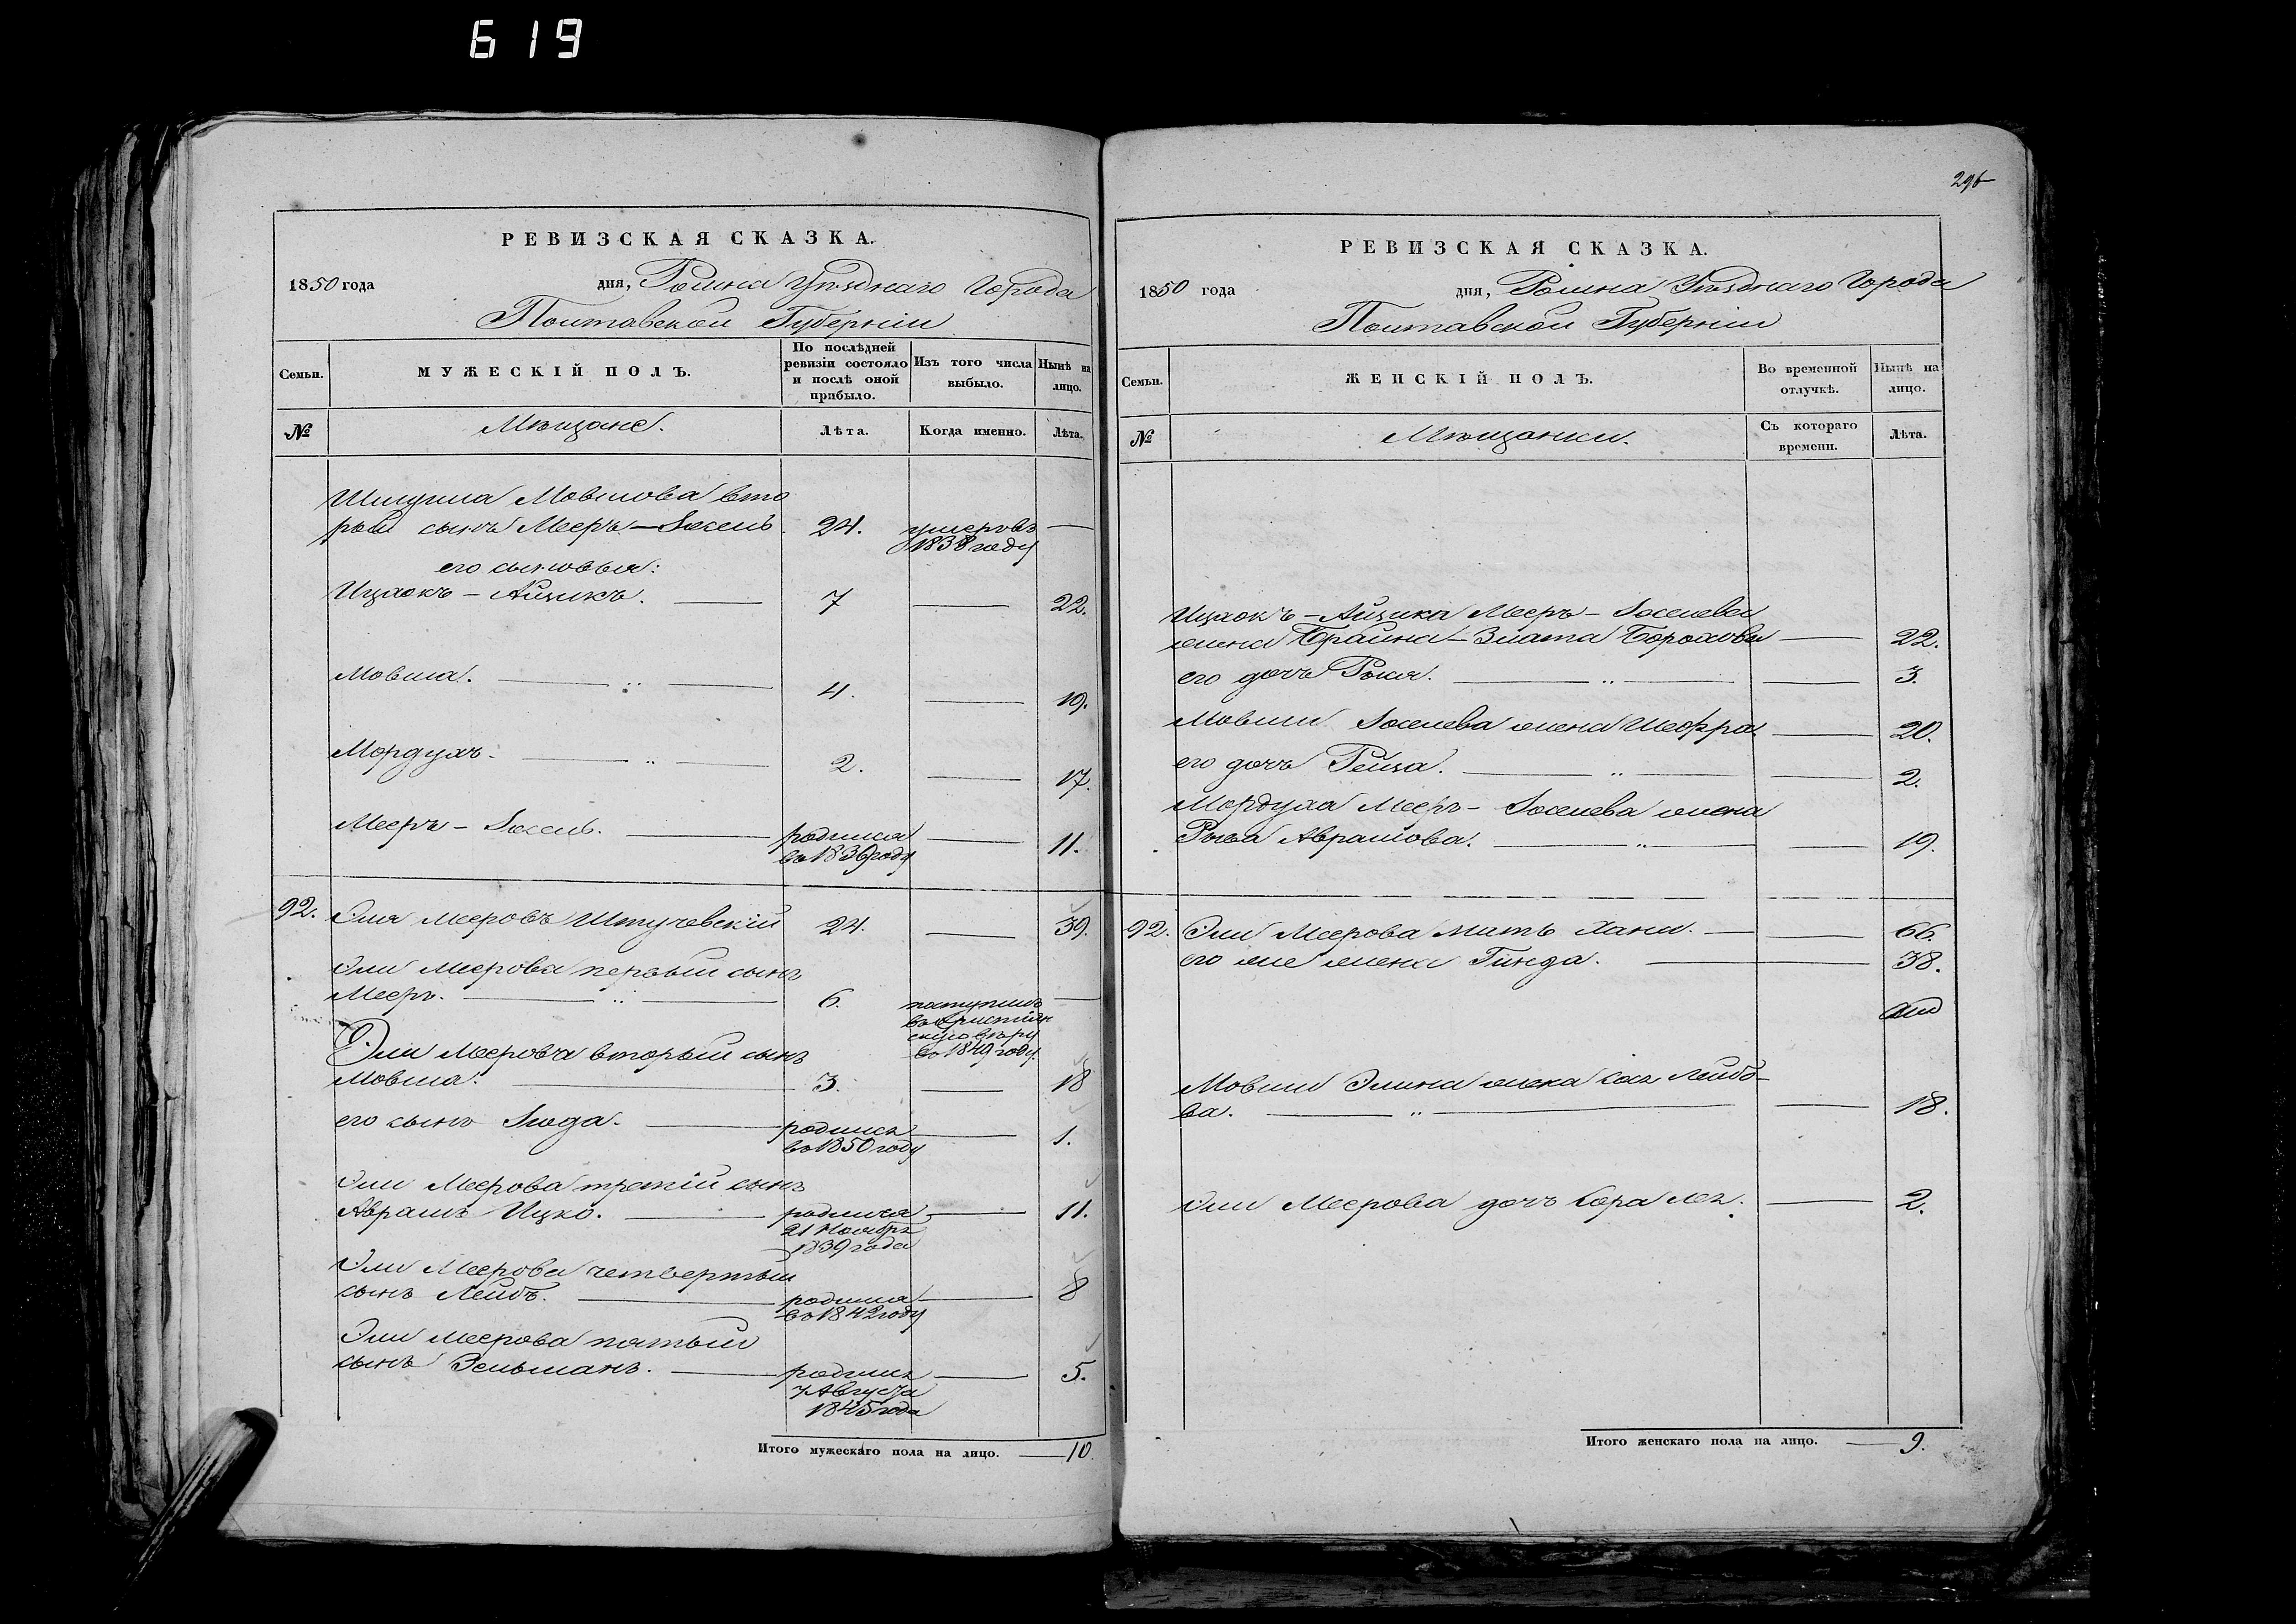 619
РЕВИЗСКАЯ СКАЗКА.
1850 года дня, Ромна Уѣзднаго Города
Полтавской Губерніи
Семьи.
МУЖЕСКІЙ ПОЛЪ.
По послѣдней ревизіи состояло и послѣ оной прибыло.
Изъ того числа выбыло.
Нынѣ на лицо.
№
Мѣщане.
Лѣта.
Когда именно.
Лѣта.
Мовшова вто
рый сынъ Мееръ-Іосель. 24. умеръ въ
1838 году
его сыновья:
Ицхокъ-Айзикъ. 7 22.
Мовша. 4. 19.
Мордухъ. 2. 17.
Мееръ-Іосель. родился 11.
въ 1839 году
92. Эля Мееровъ Штучевскій 24. 39.
Эли Меерова первый сынъ
Мееръ. 6. поступилъ
въ христіян
скую вѣру
въ 1849 году.
Эли Меерова вторый сынъ
Мовша. 3. 18
его сынъ Іюда. родился 1.
въ 1850 году
Эли Меерова третій сынъ
Абрамъ Ицко. родился 11.
21 Ноября
1839 года
Эли Меерова четвертый
сынъ Лейбъ. родился 8
въ 1842 году
Эли Меерова пятый
сынъ Зельманъ. родился 5.
7 Августа
1845 года
Итого мужескаго пола на лицо. 10.
296
РЕВИЗСКАЯ СКАЗКА.
1850 года дня, Ромна Уѣзднаго Города
Полтавской Губерніи
Семьи.
ЖЕНСКІЙ ПОЛЪ.
Во временной отлучкѣ.
Нынѣ на лицо.
№
Мѣщанки.
Съ котораго времени.
Лѣта.
Ицхокъ-Айзика Мееръ-Іоселева
жена Брайна-Злата Борохова 22.
его дочь Рыся. 3.
Мовши Іоселева жена Шефра. 20.
его дочь Рейза. 2.
Мордуха Мееръ-Іоселева жена
Абрамова. 19.
92. Эли Меерова мать Хана. 66.
его же жена Гинда. 38.
Мовши Элина жена Лейбо-
ва. 18.
Эли Меерова дочь Сора Лея. 2.
Итого женскаго пола на лицо. 9.